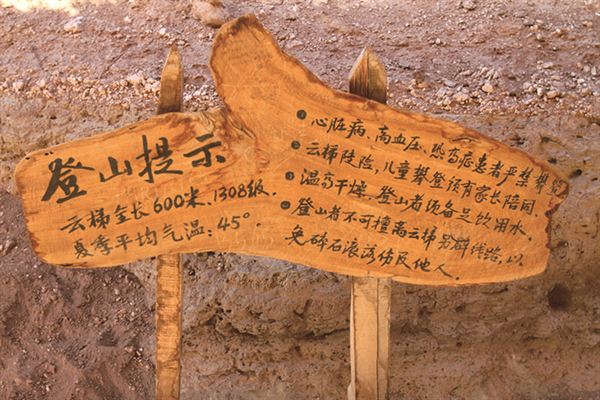 登山提示
云梯全长600米、1308级.
夏季平均气温:45°
❶心脏病、高血压、恐高症患者严禁攀
❷云梯陡险,儿童攀登须有家长陪同.
❸温高干燥、登山者须备足饮用水.
❹登山者不可擅离云梯另辟线路,以
免碎石滚落伤及他人.